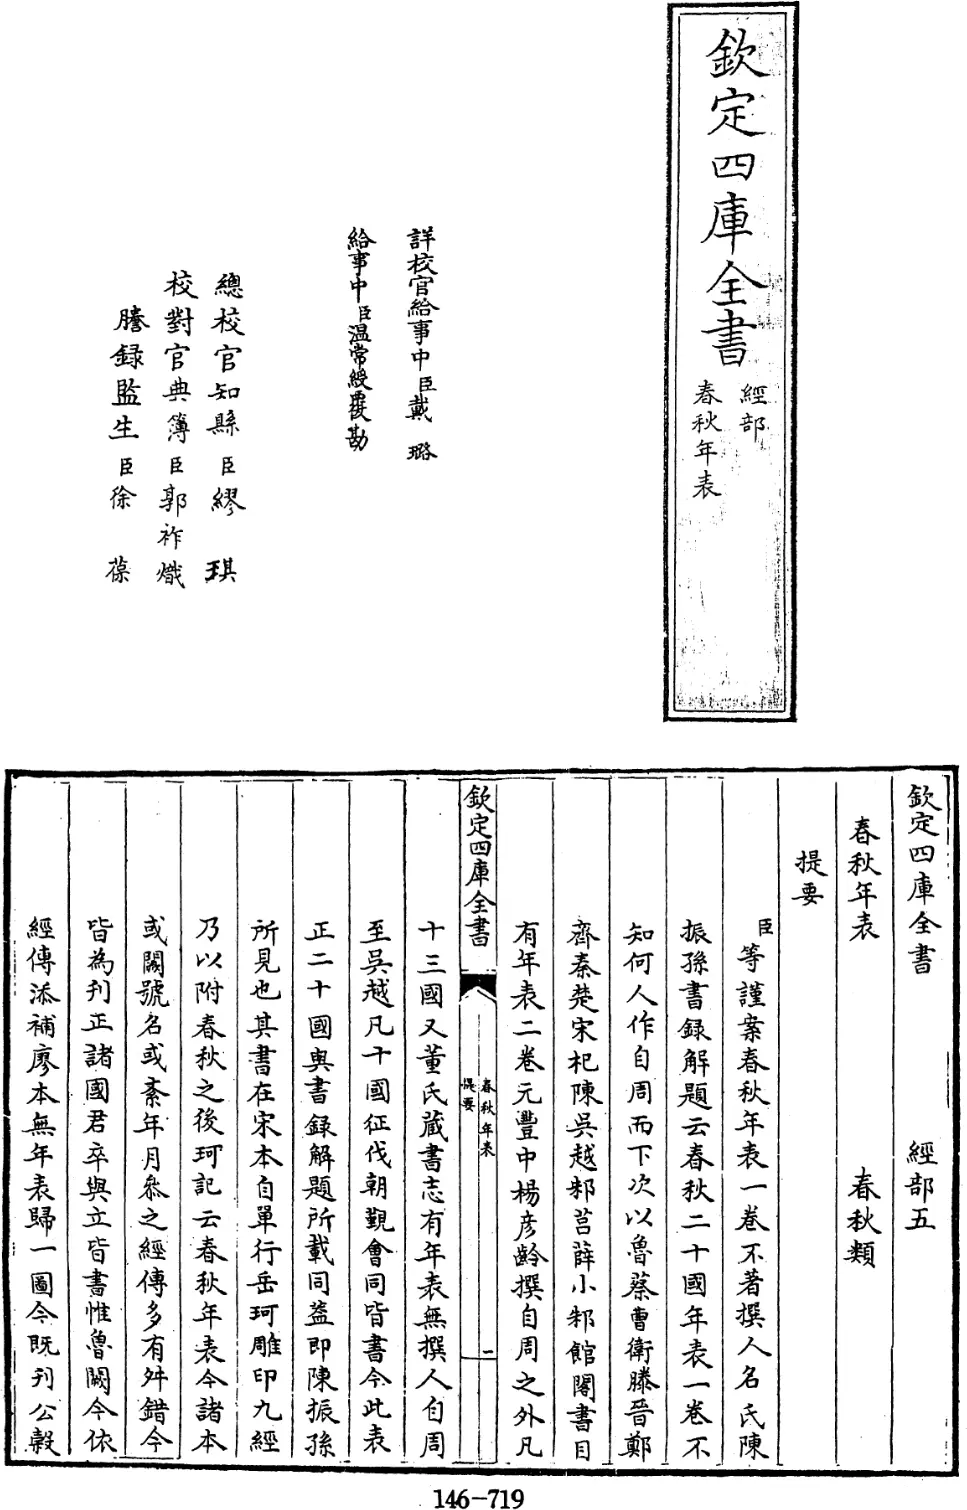 欽定四庫全書
經部
春秋年表
詳校官給事中臣戴璐
給事中臣温常綬覆勘
總校官知縣臣繆琪
校對官典簿臣郭祚熾
謄録監生臣徐葆
欽定四庫全書 經部五
春秋年表 春秋類
提要
臣等謹案春秋年表一卷不著撰人名氏陳
振孫書録解題云春秋二十國年表一卷不
知何人作自周而下次以魯蔡曹衛滕晉鄭
齊秦楚宋杞陳吳越邾莒薛小邾館閣書目
有年表二卷元豐中楊彦齡撰自周之外凡
欽定四庫全書
春秋年表
提要
一
十三國又董氏藏書志有年表無撰人自周
至吳越凡十國征伐朝覲會同皆書今此表
正二十國與書録解題所載同葢即陳振孫
所見也其書在宋本自單行岳珂雕印九經
乃以附春秋之後珂記云春秋年表今諸本
或闕號名或紊年月叅之經傳多有舛錯今
皆為刋正諸國君卒與立皆書惟魯闕今依
經傳添補廖本無年表歸一圖今既刋公穀
146-719